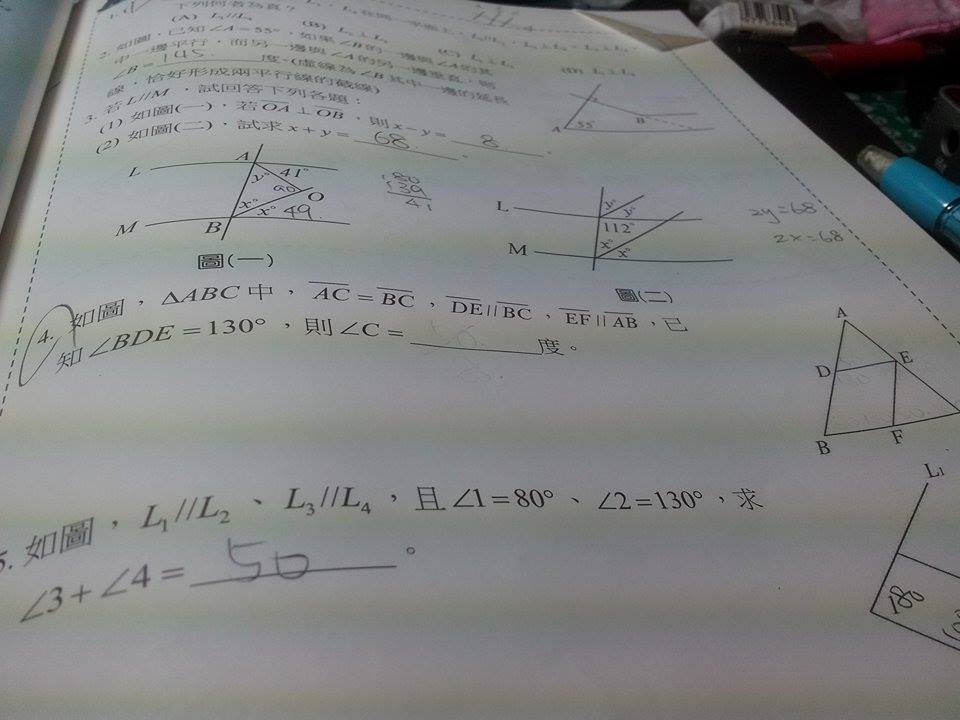 下列何者為真？
(A) L₁//L₂
2. 如圖，已知∠A=55°，如果∠B的一邊與∠A的其
中一邊平行，而另一邊與∠A的另一邊垂直，則
∠B= 145 度。(虛線為∠B其中一邊的延長
線，恰好形成兩平行線的截線)
A 55° B
3. 若L//M，試回答下列各題：
(1) 如圖(一)，若OA⊥OB，則x−y= 8 。
(2) 如圖(二)，試求x+y= 68 。
L A 41° y° 90 O
M B x° x° 49
圖(一)
180
139
41
L y° y° 112°
M x° x°
圖(二)
2y=68
2x=68
4. 如圖，ΔABC中，AC=BC，DE//BC，EF//AB，已
知∠BDE=130°，則∠C= 度。
A
D E
B F
5. 如圖，L₁//L₂、L₃//L₄，且∠1=80°、∠2=130°，求
∠3+∠4= 50 °
L₁
180